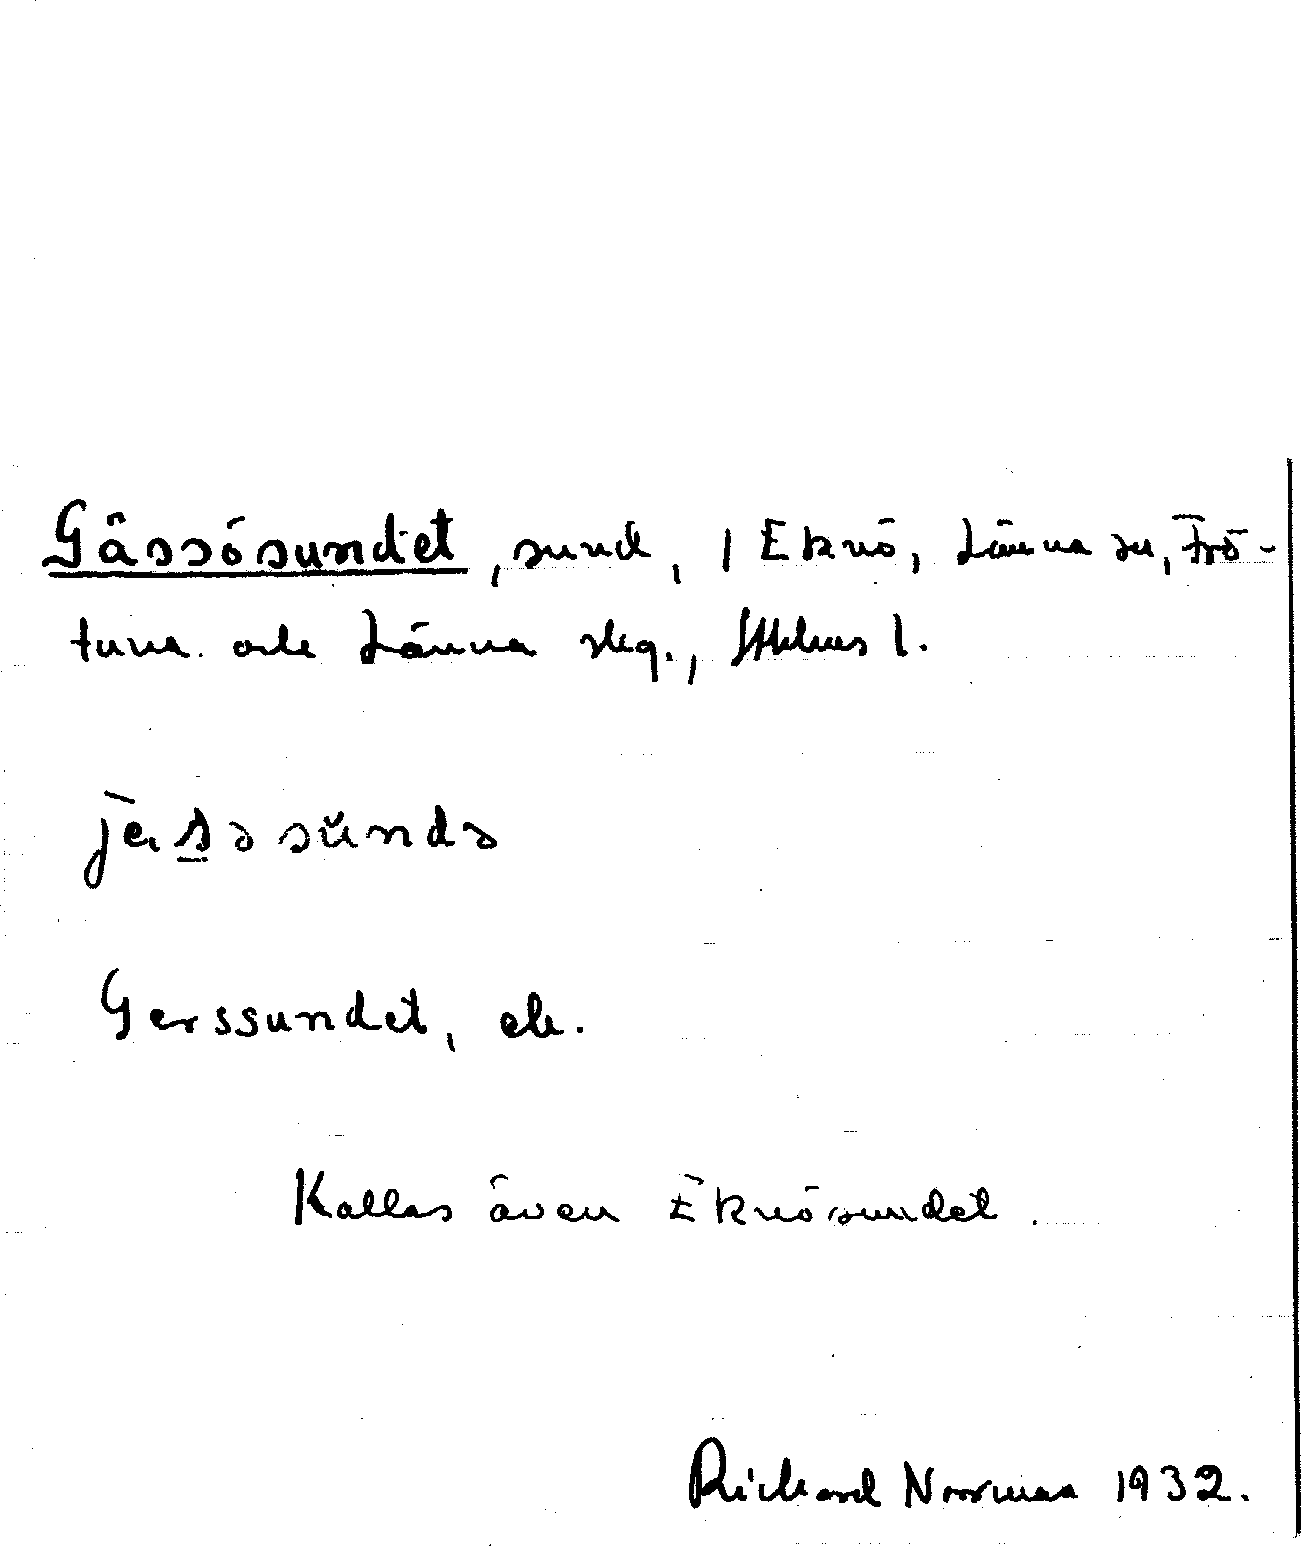 Gåssösundet, sund, / Eknö, Länna sn, Frö-
tuna och Länna skg., Sthlms l.
jersəsŭndə
Gerssundet, ek.
Kallas även Eknösundet.
Richard Norrman 1932.